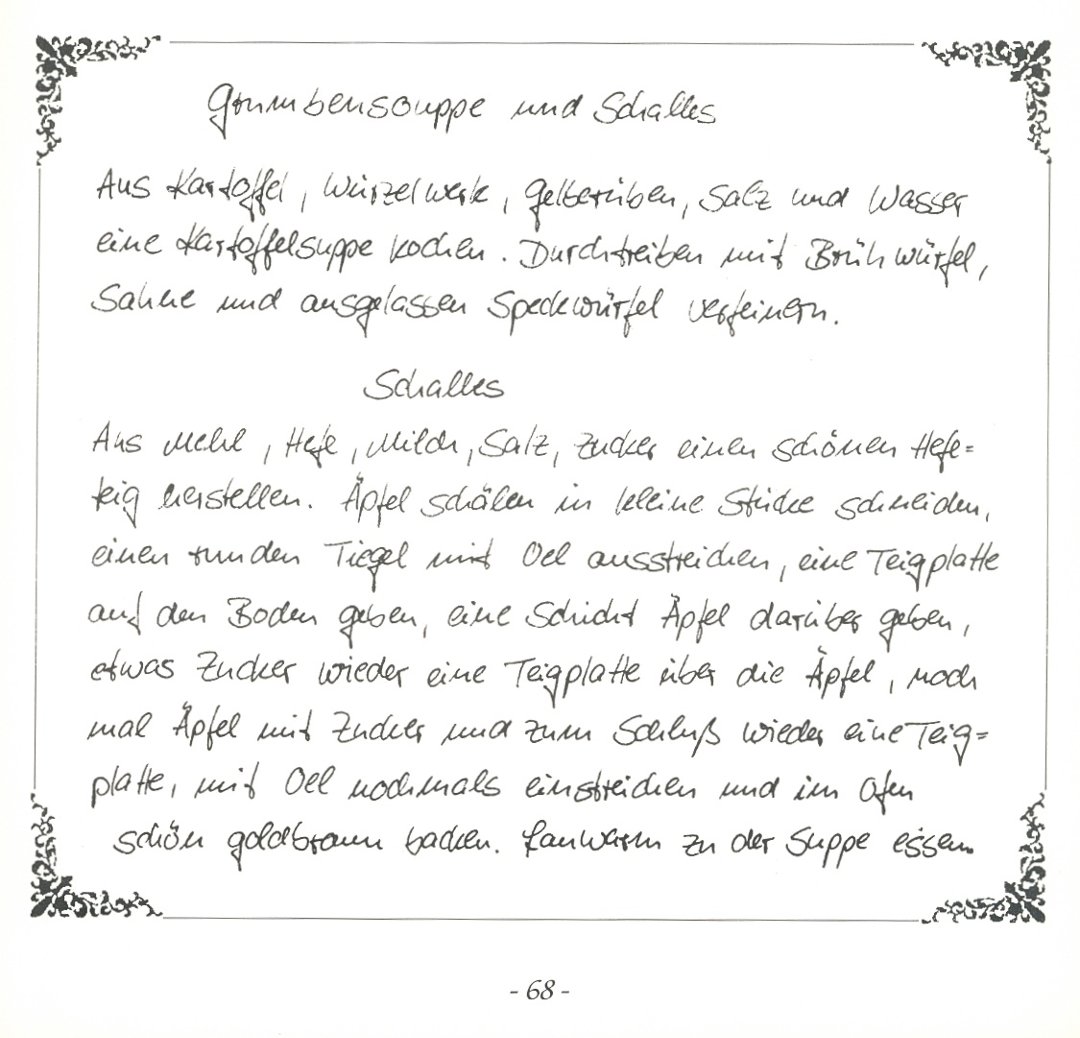 Grumbensouppe und Schalles
Aus Kartoffel, Wurzelwerk, Gelberüben, Salz und Wasser
eine Kartoffelsuppe kochen. Durchtreiben mit Brühwürfel,
Sahne und ausgelassen Speckwürfel verfeinern.
Schalles
Aus Mehl, Hefe, Milch, Salz, Zucker einen schönen Hefe=
teig herstellen. Äpfel schälen in kleine Stücke schneiden,
einen runden Tiegel mit Oel ausstreichen, eine Teigplatte
auf den Boden geben, eine Schicht Äpfel darüber geben,
etwas Zucker wieder eine Teigplatte über die Äpfel, noch
mal Äpfel mit Zucker und zum Schluß wieder eine Teig=
platte, mit Oel nochmals einstreichen und im Ofen
schön goldbraun backen. Lauwarm zu der Suppe essen.
- 68 -